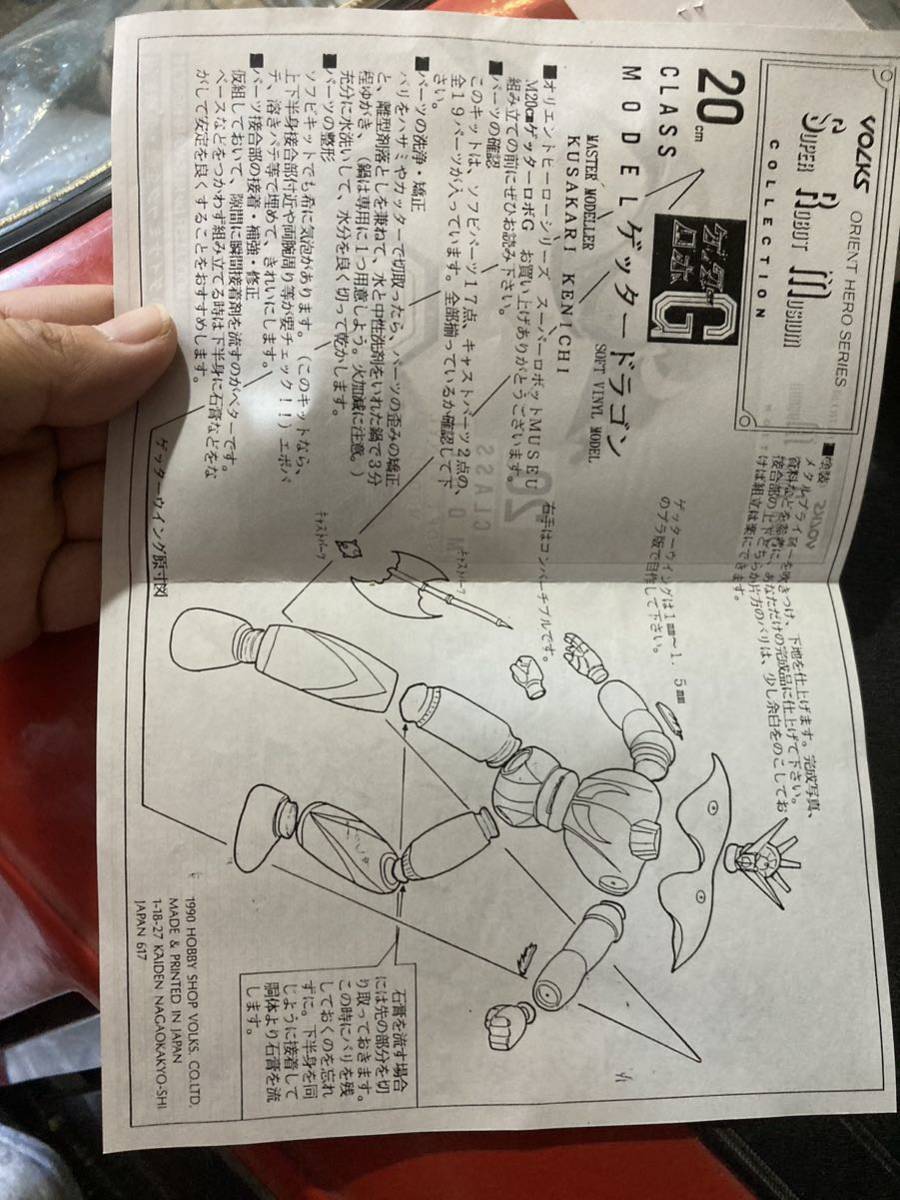 VOLKS ORIENT HERO SERIES
SUPER ROBOT MUSIUM
COLLECTION
20cm
CLASS
MODEL
ゲッターロボG
ゲッタードラゴン
MASTER MODELLER
KUSAKARI KENICHI
SOFT VINYL MODEL
■オリエントヒーローシリーズ スーパーロボットMUSEU
M20cmゲッターロボG お買い上げありがとうございます。
組み立ての前にぜひお読み下さい。
■パーツの確認
このキットは、ソフビパーツ17点、キャストパーツ2点の、
全19パーツが入っています。全部揃っているか確認して下
さい。
■パーツの洗浄・矯正
バリをハサミやカッターで切取ったら、パーツの歪みの矯正
と、離型剤落としを兼ねて、水と中性洗剤をいれた鍋で3分
程ゆがき、(鍋は専用に1つ用意しよう。火加減に注意。)
充分に水洗いして、水分を良く切って乾かします。
■パーツの整形
ソフビキットでも希に気泡があります。(このキットなら、
上下半身接合部付近や両腕周り等が要チェック!!)エポパ
テ、溶きパテ等で埋めて、きれいにします。
■パーツ接合部の接着・補強・修正
仮組しておいて、隙間に瞬間接着剤を流すのがベターです。
ベースなどをつかわず組み立てる時は下半身に石膏などをな
がして安定を良くすることをおすすめします。
■塗装
メタルプライマーを吹きつけ、下地を仕上げます。完成写真、
資料などを参考に、あなただけの完成品に仕上げて下さい。
接合部の上下どちらか片方のバリは、少し余白をのこしてお
けば組立は楽にできます。
ゲッターウイングは1mm〜1.5mm
のプラ版で自作して下さい。
右手はコンバーチブルです。
キャストパーツ
キャストパーツ
ゲッターウイング原寸図
1/1
石膏を流す場合
には先の部分を切
り取っておきます。
この時にバリを残
しておくのを忘れ
ずに。下半身を同
じように接着して
胴体より石膏を流
します。
1990 HOBBY SHOP VOLKS. CO.LTD,
MADE & PRINTED IN JAPAN
1-18-27 KAIDEN NAGAOKAKYO-SHI
JAPAN 617